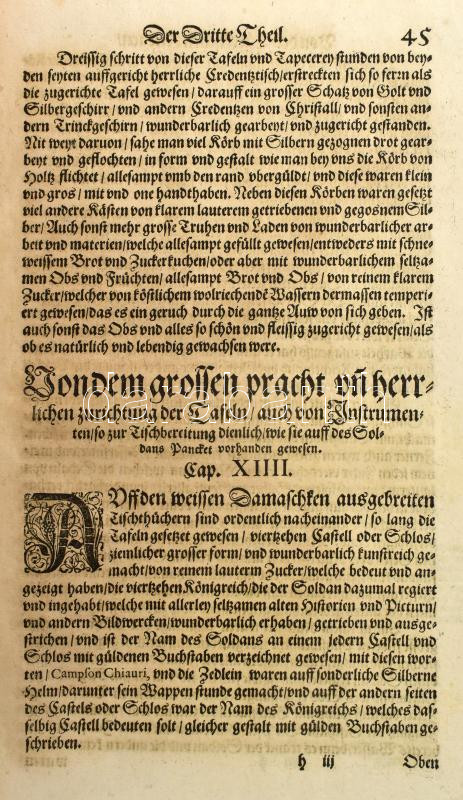 Der Dritte Theil. 45
Dreissig schritt von dieser Tafeln vnd Tapecerey stunden von bey-
den seyten auffgericht herrliche Credentztisch/erstreckten sich so ferrn als
die zugerichte Tafel gewesen/ darauff ein grosser Schatz von Golt vnd
Silbergeschirr/ vnd andern Credentzen von Christall/ vnd sonsten an-
dern Trinckgeschirn/ wunderbarlich gearbeyt/ vnd zugericht gestanden.
Nit weyt daruon/ sahe man viel Körb mit Silbern gezognen drot gear-
beyt vnd geflochten/ in form vnd gestalt wie man bey vns die Körb von
Holtz flichtet/ allesampt vmb den rand vbergüldt/ vnd diese waren klein
vnd gros/ mit vnd one handthaben. Neben diesen Körben waren gesetzt
viel andere Kästen von klarem lauterem getriebenen vnd gegosnem Sil-
ber/ Auch sonst mehr grosse Truhen vnd Laden von wunderbarlicher ar-
beit vnd materien/welche allesampt gefüllt gewesen/entweders mit schne-
weissem Brot vnd Zuckerkuchen/oder aber mit wunderbarlichem seltza-
men Obs vnd Früchten/ allesampt Brot vnd Obs/ von reinem klarem
Zucker/welcher von köstlichem wolriechendē Wassern dermassen temperi-
ert gewesen/das es ein geruch durch die gantze Auw von sich geben. Ist
auch sonst das Obs vnd alles so schön vnd fleissig zugericht gewesen/als
ob es natürlich vnd lebendig gewachsen were.
Von dem grossen pracht vñ herr-
lichen zurichtung der Tafeln/ auch von Instrumen-
ten/so zur Tischbereitung dienlich/wie sie auff des Sol-
dans Pancket vorhanden gewesen.
Cap. XIIII.
AVff den weissen Damaschken ausgebreiten
Tischthüchern sind ordentlich nacheinander/ so lang die
Tafeln gesetzet gewesen/ viertzehen Castell oder Schlos/
ziemlicher grosser form/ vnd wunderbarlich kunstreich ge-
macht/von reinem lauterm Zucker/welche bedeut vnd an-
gezeigt haben/die viertzehen Königreich/die der Soldan dazumal regiert
vnd ingehabt/welche mit allerley seltzamen alten Historien vnd Picturn/
vnd andern Bildwercken/wunderbarlich erhaben/ getrieben vnd ausge-
strichen/ vnd ist der Nam des Soldans an einem jedern Castell vnd
Schlos mit güldenen Buchstaben verzeichnet gewesen/ mit diesen wor-
ten/ Campson Chiauri, vnd die Zedlein waren auff sonderliche Silberne
Helm/darunter sein Wappen stunde gemacht/vnd auff der andern seiten
des Castels oder Schlos war der Nam des Königreichs/ welches das-
selbig Castell bedeuten solt/ gleicher gestalt mit gülden Buchstaben ge-
schrieben.
h iij Oben